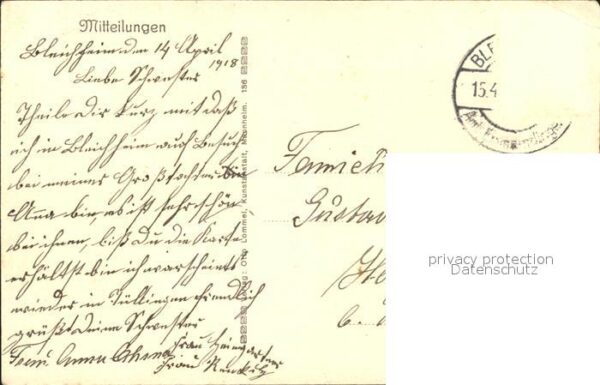 Mitteilungen
Bleichheim den 14 April
1918
Liebe Schwester
Theile Dir kurz mit daß
ich in Bleichheim auf Besuch
bei meiner Großtochter bin
Anna bin, es ist sehr schön
bei ihnen, biß Du die Karte
erhältst bin ich warscheints
wieder in Tüllingen freundlich
grüßt Deine Schwester
Frau Anna
Frau
Frau
Verlag: Otto Lommel, Kunstanstalt, Mannheim. 186
BLE
15.4
Amt Emmendingen
Familie
Gustav
privacy protection
Datenschutz